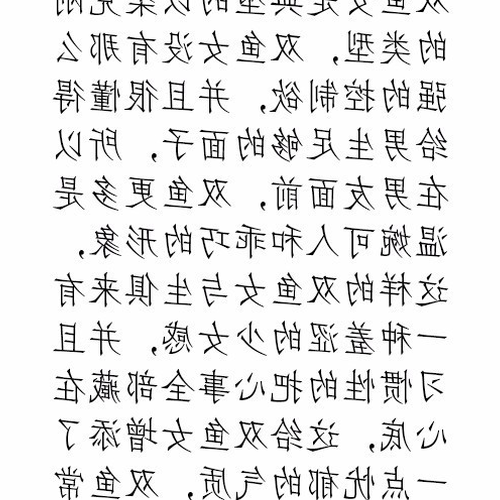 双鱼女是典型的以柔克刚
的类型，双鱼女没有那么
强的控制欲，并且很懂得
给男生足够的面子，所以
在男友面前，双鱼更多是
温婉可人和乖巧的形象，
这样的双鱼女与生俱来有
一种羞涩的少女感，并且
习惯性的把心事全部藏在
心底，这给双鱼女增添了
一点忧郁的气质，双鱼常